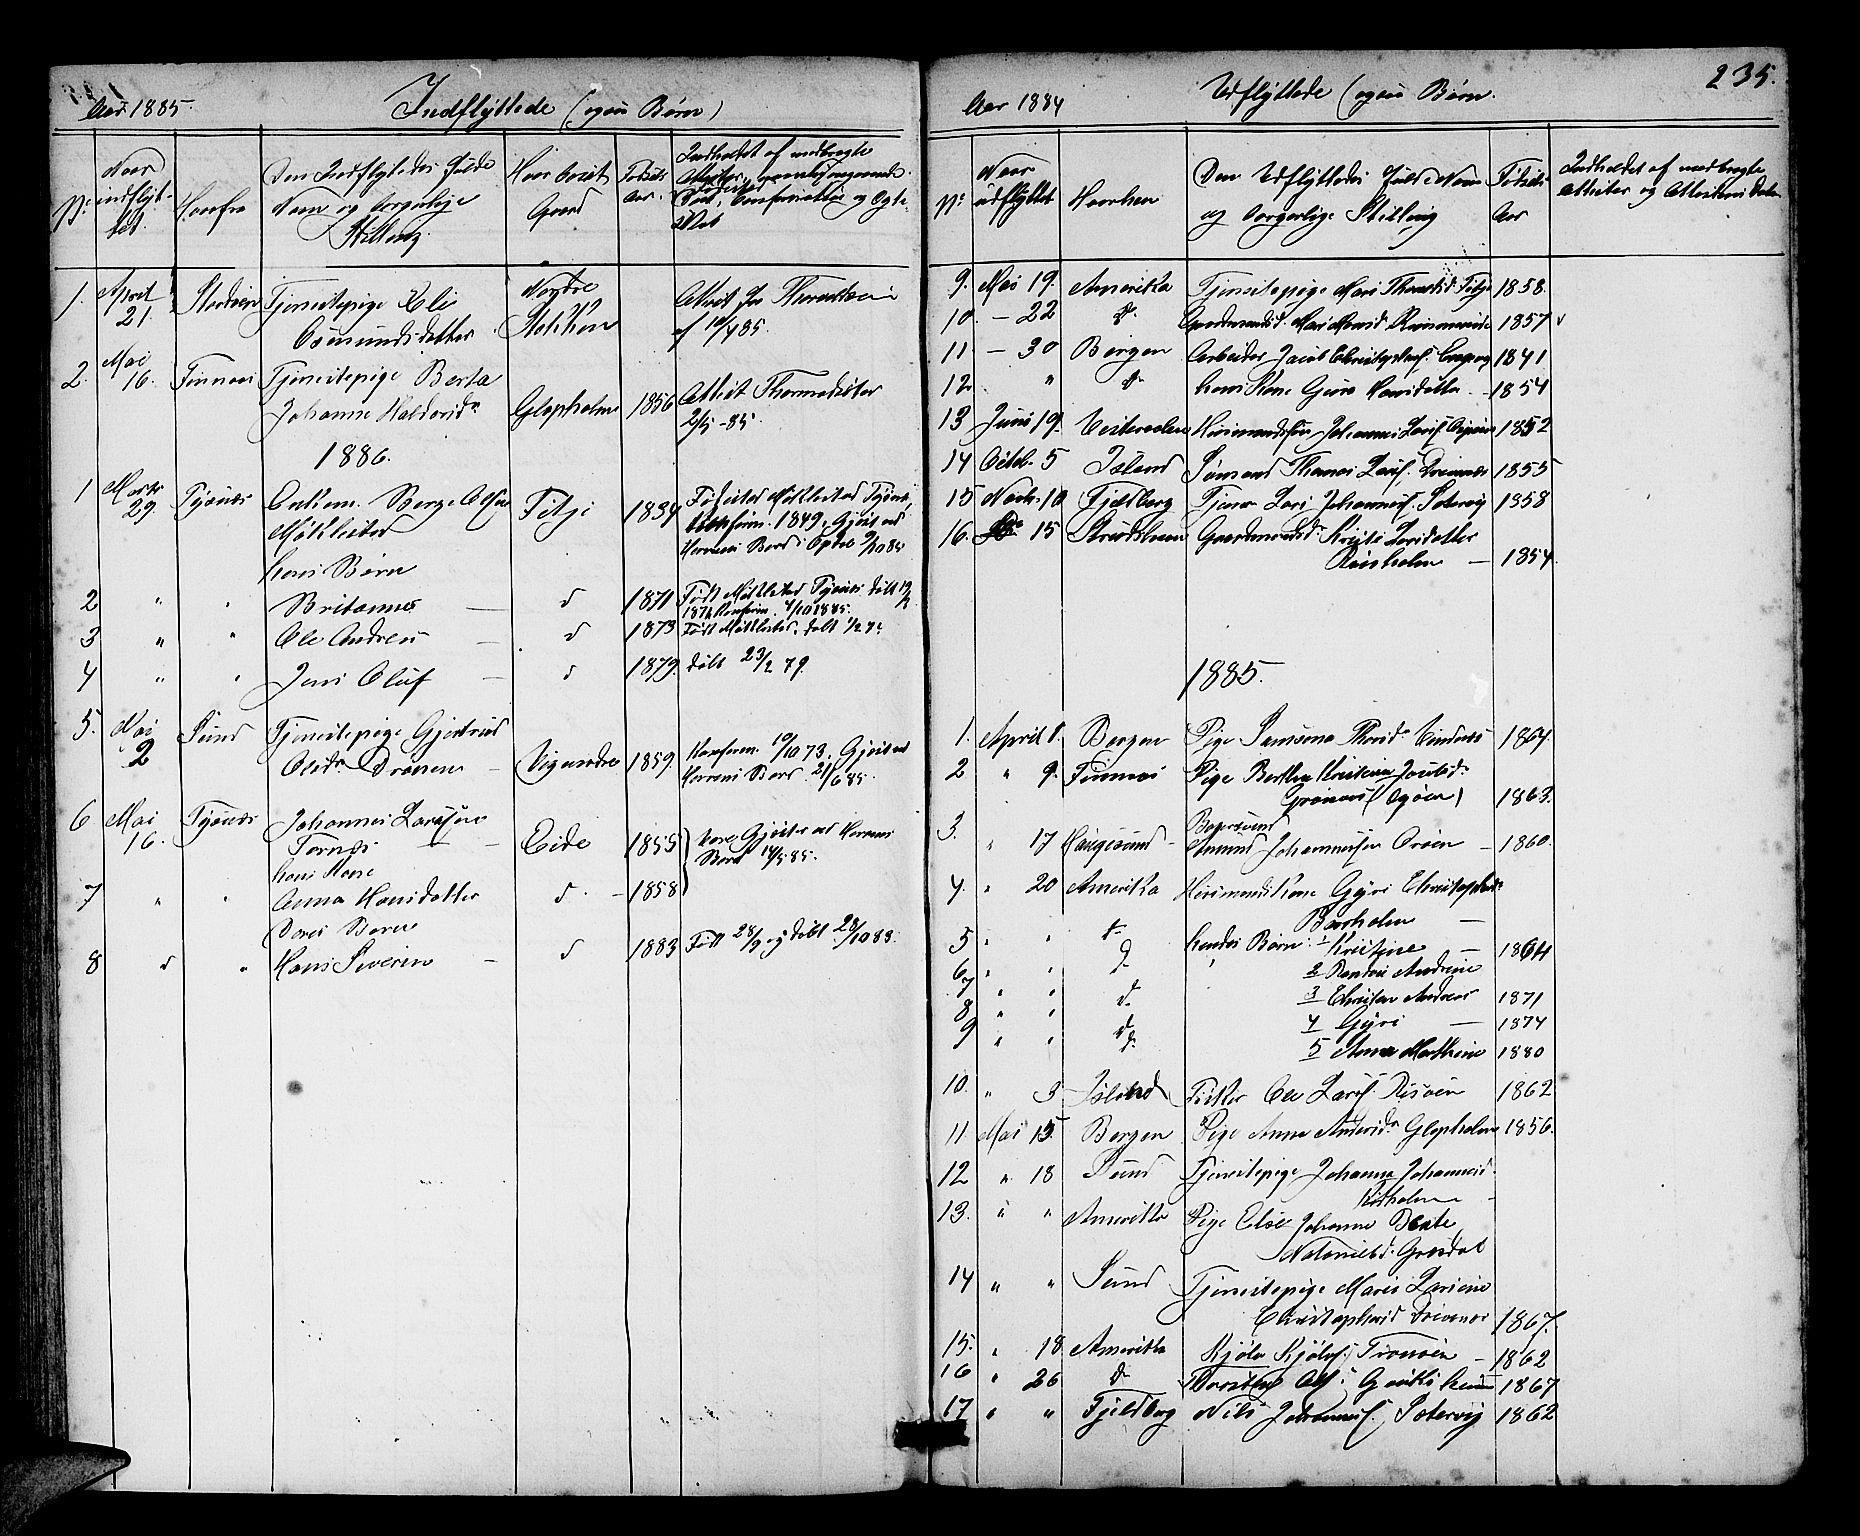 Aar 1885.
Indflyttede (ogsaa Børn)
No
Naar indflyt-
tet.
Hvorfra
Den Indflyttedes fulde
Navn og borgerlige
Stilling.
Hvor bosit
Gaard
Fødsels
Aar.
Indholdet af medbragte
Attester
Daab, Confirmation og Egte-
skab
1. April 21. Tjenestepige Eli
Aamundsdatter Nordre
Stokken Attest fra
af 10/4 85.
2. Mai 16. Finnaas Tjenestepige Berta
Johanne Haldorsdr Glopholmen 1856 Attest
2/5 -85.
1886.
1 Marts 29 Tysnæs Enkem. Berge Olsen
Møklestad Fitje 1834 Født Møklestad Tysnæs,
Confirm. 1849. Gjest ved
Herrens Bord i Opdal 9/10 85
hans Børn
2 " " Britannus — d 1871 Født Møklestad Tysnæs døbt
Konfirm. 4/10 1885.
3 " " Ole Andreas — d 1873 Født Møklestad, døbt
4 " " Jens Oluf — d 1879. døbt 23/2 79.
5. Mai 2 Sund Tjenestepige Gjertrud
Olsdr Drønen — Vigsundre 1859. Konfirm. 19/10 73. Gjest ved
Herrens Bord 21/6 85.
6 Mai 16. Tysnæs Johannes Larssen
Tornæs — Eide 1855 Vare Gjester ved Herrens
Bord 14/5 85.
hans Kone
7 " " Anna Hansdatter d. - 1858
Deres Børn
8 d " Hans Severin — d 1883 Født 28/9 og døbt 28/10 83.
235.
Aar 1884
Udflyttede (ogsaa Børn.
No
Naar
udflyttet
Hvorhen
Den Udflyttedes fulde Navn
og borgerlige Stilling
Fødsels
Aar
Indholdet af medbragte
Attester og Attestens Dato
9. Mai 19. Amerika Tjenestepige Mari Thorsd. Fitje 1858.
10. — 22 d. Gaardmandsd. Mari 1857
11 — 30 Bergen Arbeider Jacob Christophers. 1841
12 " d. hans Kone Guro Hansdatter - 1854
13 Juni 19. Vesteraalen Huusmandssøn Johannes Lars. 1852
14 Octob. 5 Island Sømand Thomas Lars. Drivenæs 1855
15 Novbr. 10 Fjældberg Tjener Lars Johannes. Solervig 1858
16. 15 Strudshavn Gaardmandsd. Kristi Larsdatter
Risholm — 1854.
1885.
1. April 1. Bergen Pige Samsona Thorsdr 1864.
2 " 9. Finnaas Pige Bertha Kristina Jacobsd.
Grønnevi (Øgøen) 1863.
3. " 17 Haugesund - Bagersvend
Amund Johannessen Orøen — 1860.
4. " 20 Amerika Huusmandskone Gjøri Christophersdr
Barholm —
5 " " d. hendes Børn: 1 Kristine — 1864
6 " " d. 2 Andrine
7 " " d. 3 Christen Andreas 1871
8 " " d. 4 Gjøri — 1874
9 " " d. 5 Anna Marthine 1880
10. " 3 Island Fisker Ole Lars. Risøen 1862
11 Mai 15. Bergen Pige Anna Andersdr Glopholmen 1856.
12 " 18 Sund Tjenestepige Johanna Johannesd.
Kitholmen —
13. " " Amerika Pige Else Johanne Berte
Natanielsd. Gaasdal
14 " " Sund Tjenestepige Maris Larsine
Christophersd Drivenæs 1867.
15. " 18 Amerika Kjøle Kjøls. Tronøen — 1862
16 " 26 d Torsten Ols. 1867
17 " " Fjeldberg Nils Johannes. Solervig 1862